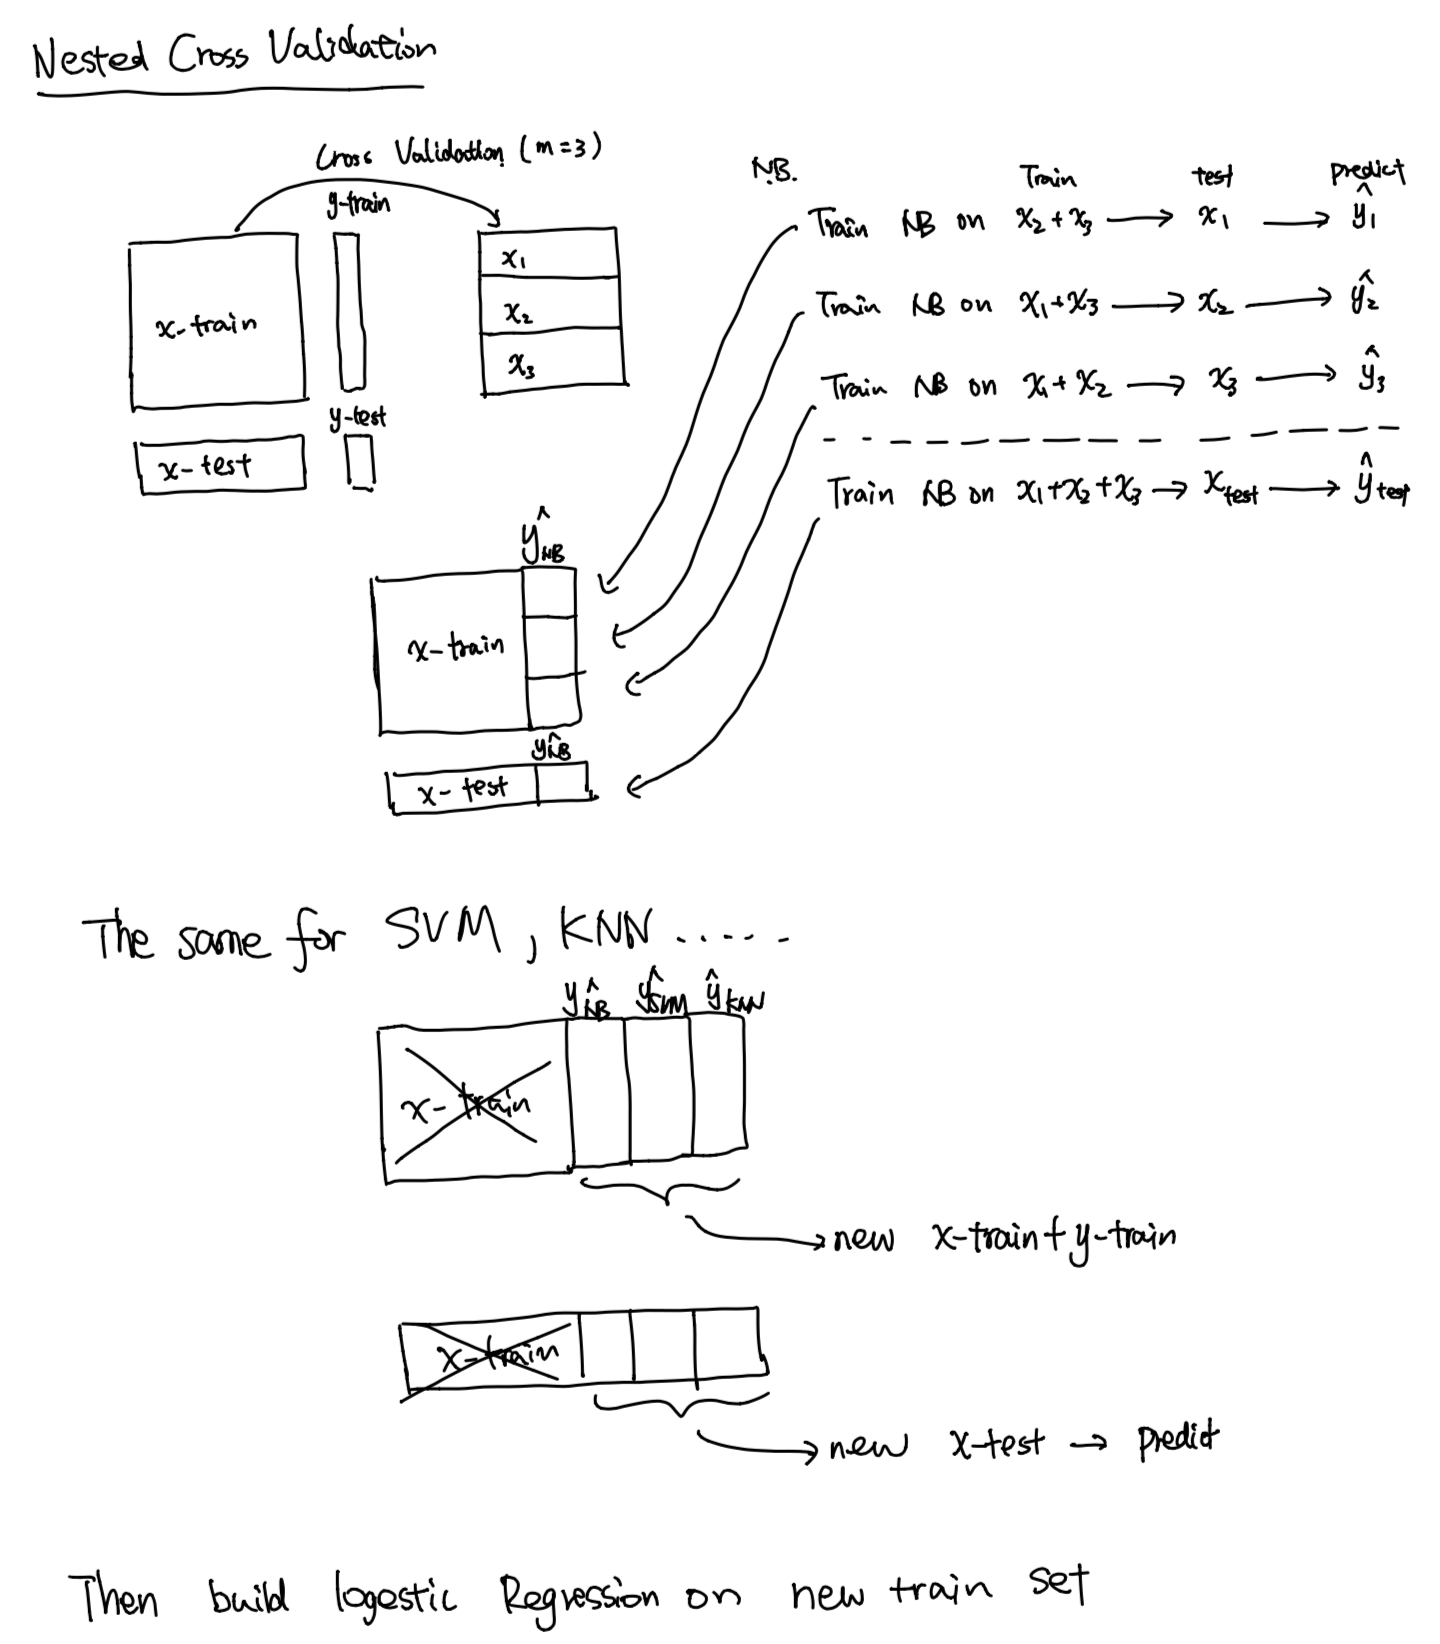 Nested Cross Validation
Cross Validation (m=3)
y-train
x-train
x₁
x₂
x₃
y-test
x-test
N.B. Train test predict
Train NB on x₂+x₃ → x₁ → ŷ₁
Train NB on x₁+x₃ → x₂ → ŷ₂
Train NB on x₁+x₂ → x₃ → ŷ₃
Train NB on x₁+x₂+x₃ → x_test → ŷ_test
ŷ_NB
x-train
ŷ_NB
x-test
The same for SVM, KNN .....
ŷ_NB ŷ_SVM ŷ_KNN
x-train
new x-train+y-train
x-train
new x-test → predict
Then build logestic Regression on new train set